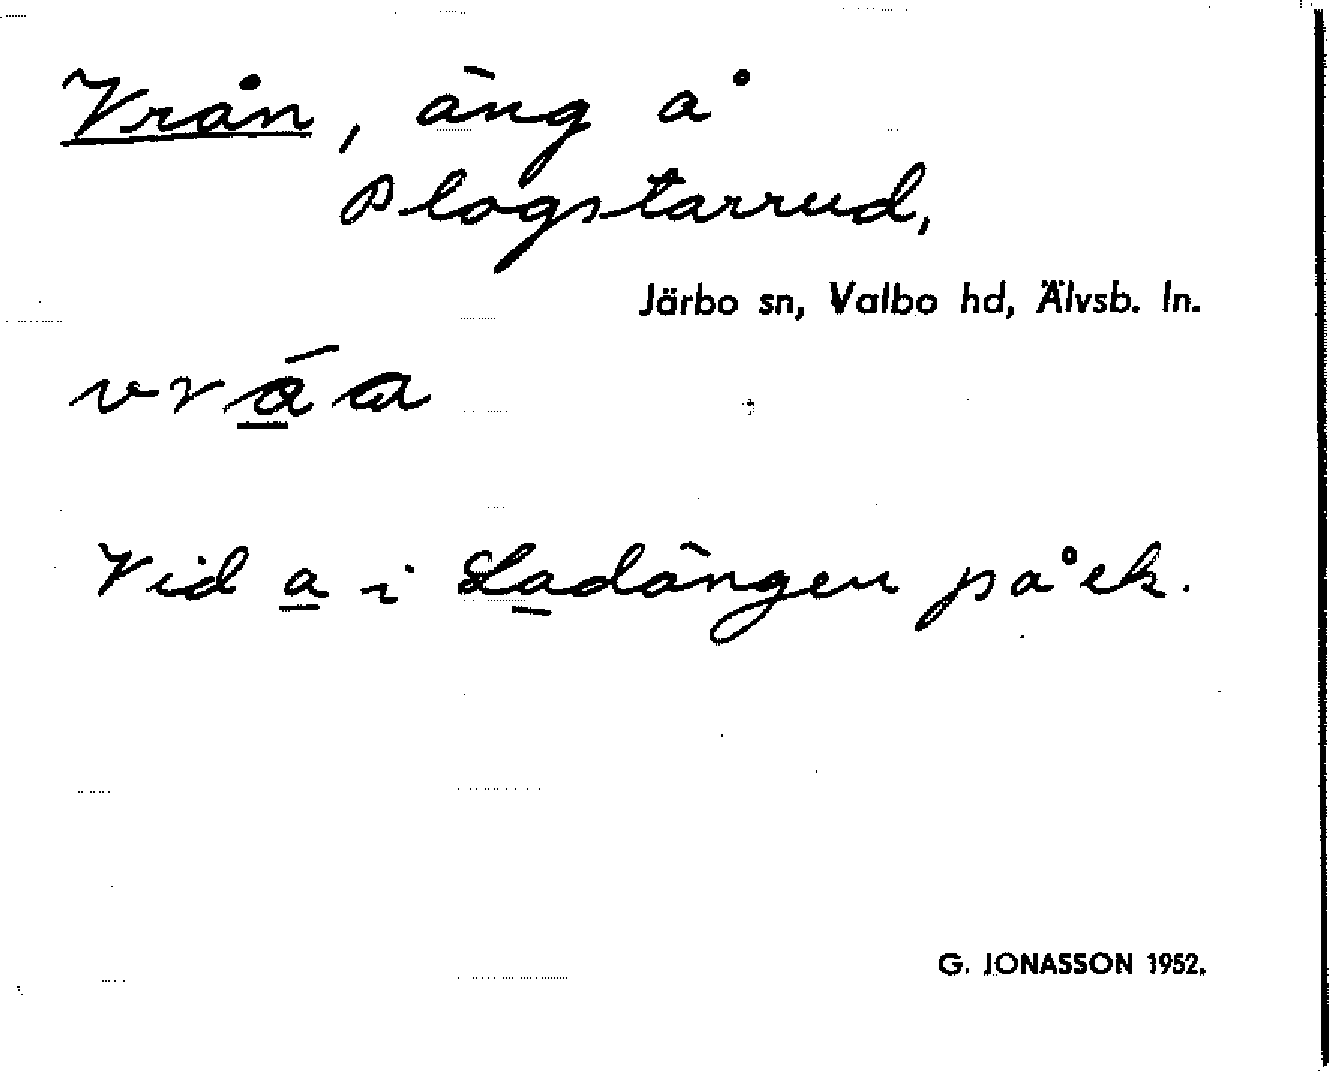 Vrån, äng å
Plogstarrud,
Järbo sn, Valbo hd, Älvsb. ln.
Vid a i Ladängen på ek.
G. JONASSON 1952.